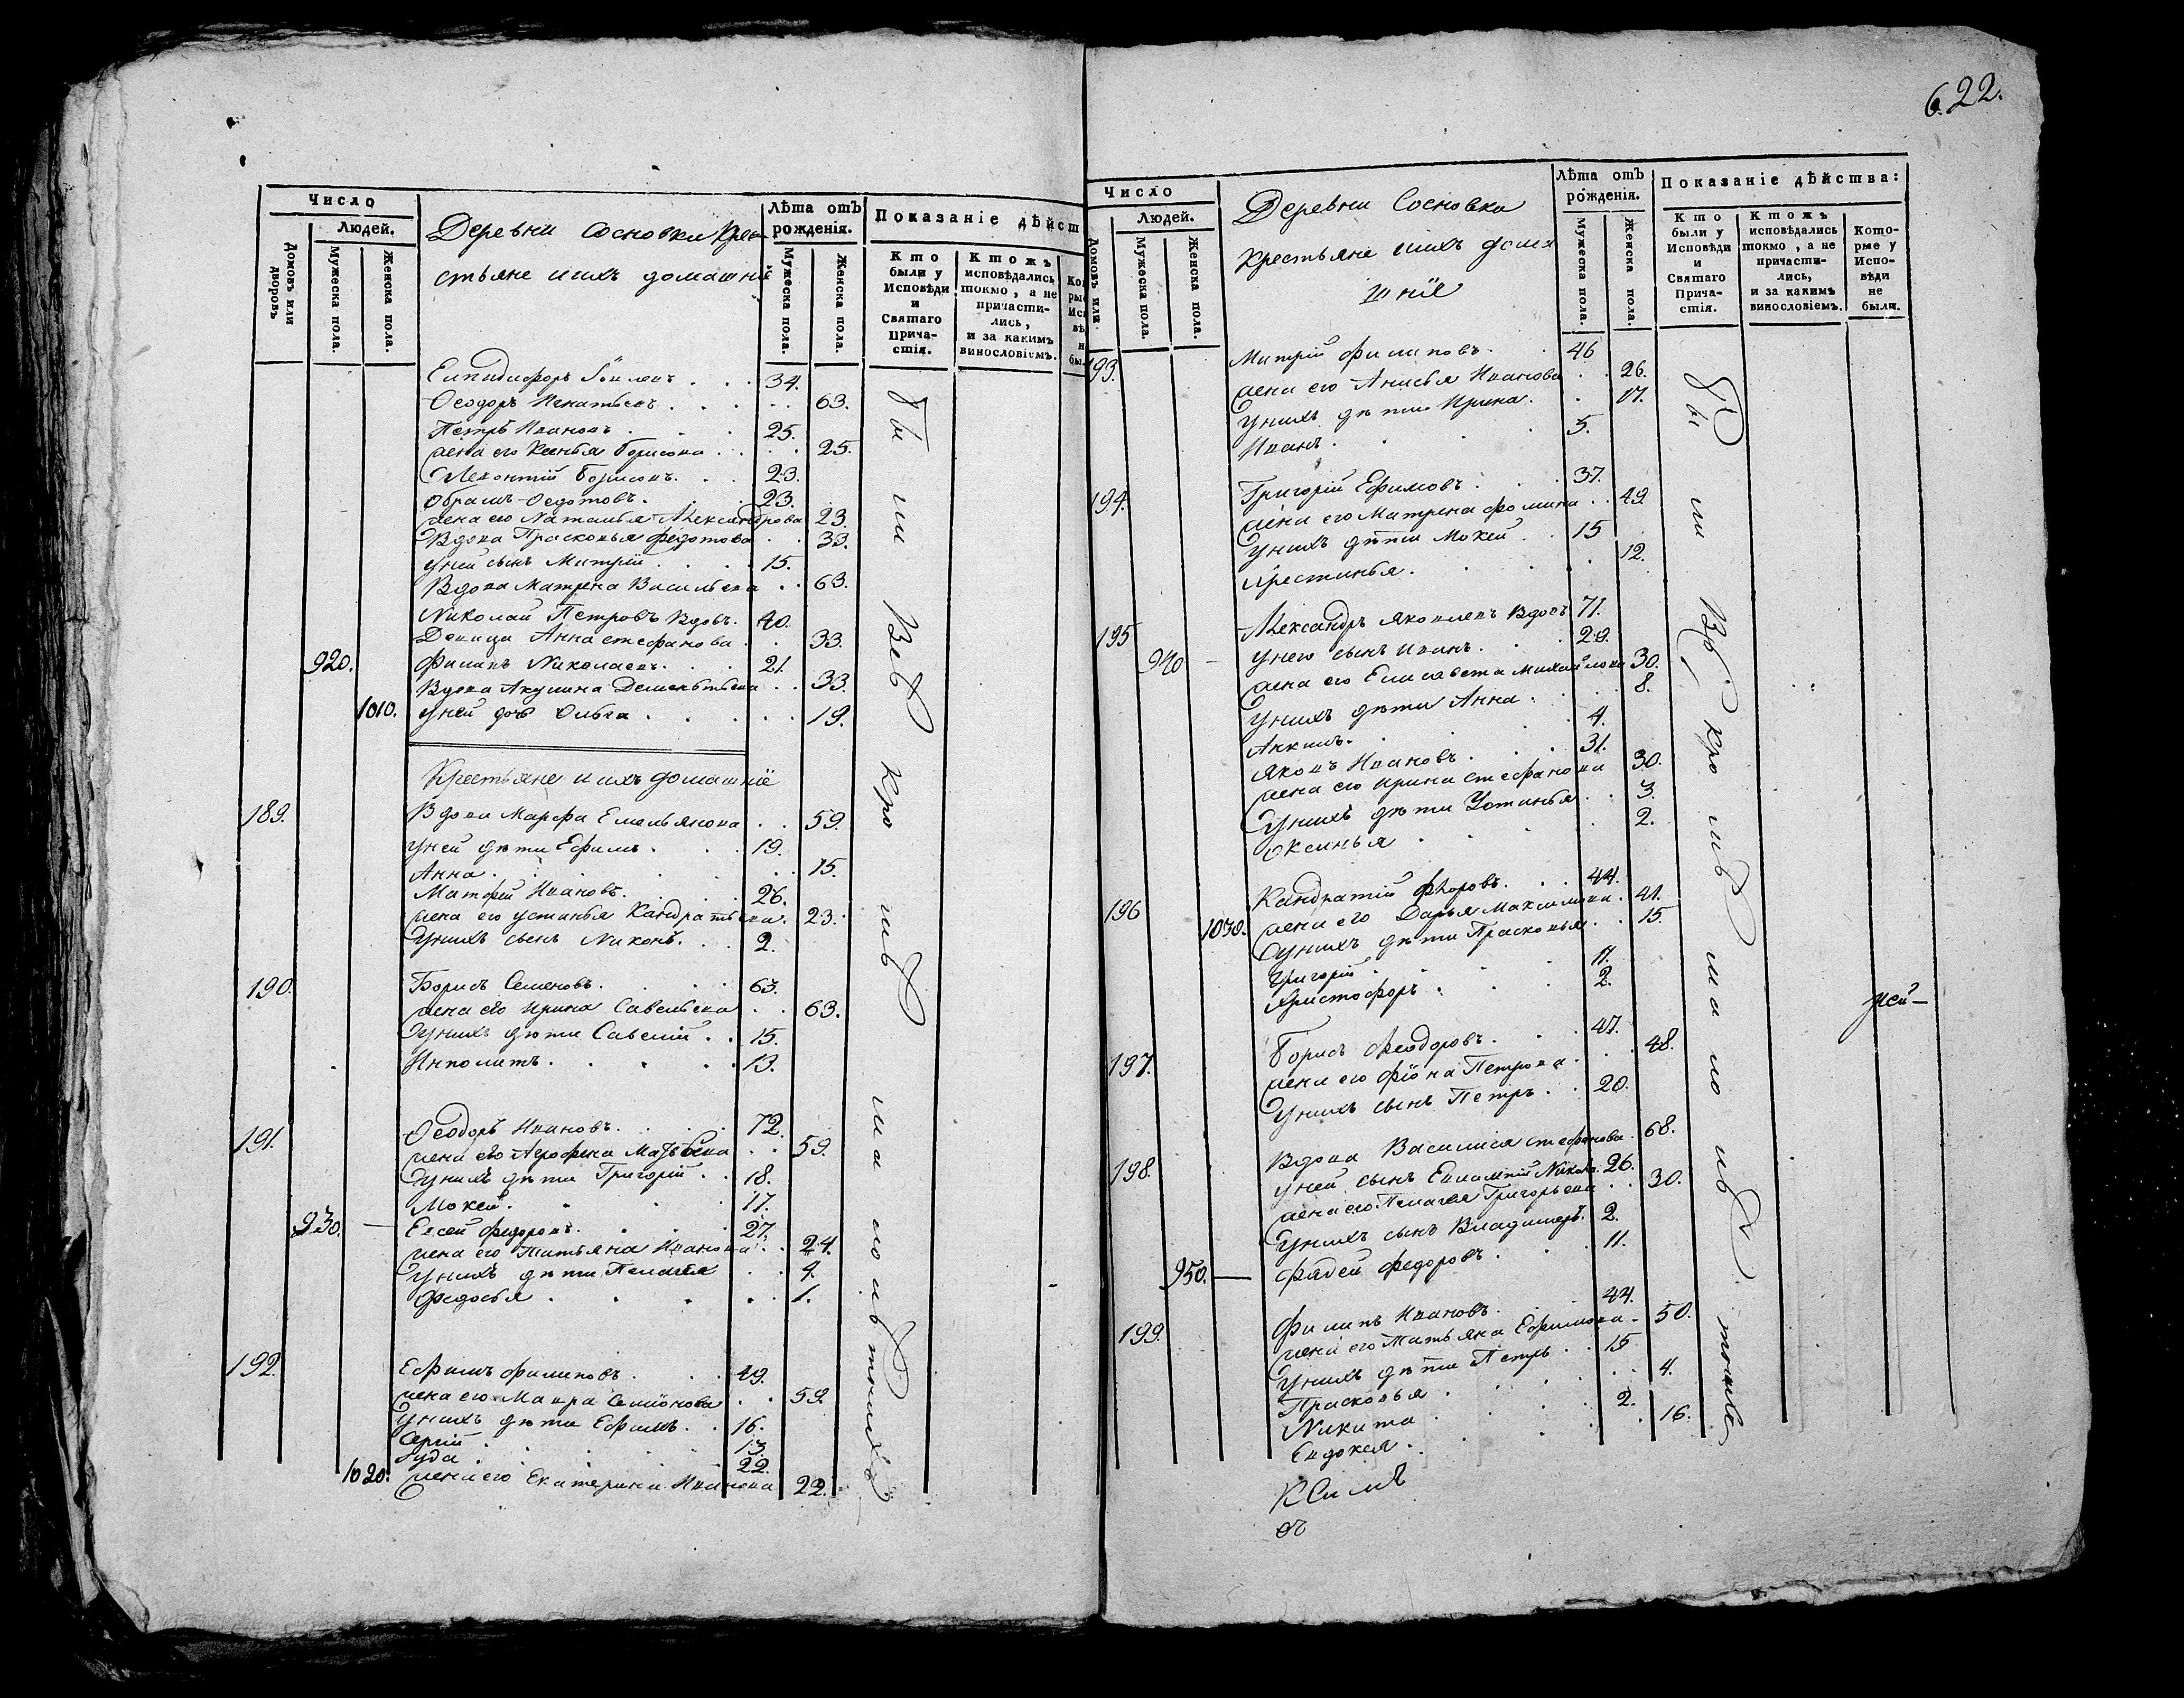 Число
Людей.
Домовъ или дворовъ
Мужеска пола.
Женска пола.
Деревни Сосновки Кре-
стьяне и ихъ домашнiе
Лѣта отъ рожденiя.
Мужеска пола.
Женска пола.
Показанiе дѣйст
Кто были у Исповѣди и Святаго Прича- стiя.
Ктожъ исповѣдались токмо, а не причасти- лись, и за какимъ винословiемъ.
Елпидифоръ 34.
Ѳеодоръ Игнатьевъ 63.
Петръ Ивановъ 25.
жена его Ксенья Борисова 25.
Леконтiй Борисовъ 23.
Обрамъ Ѳедотовъ 23.
жена его Наталья Александрова 23.
Вдова Прасковья Федотова 33.
у ней сынъ Митрiй 15.
Вдова Матрена Васильева 63.
Николай Петровъ Вдовъ 40.
Девица Анна Стефанова 33.
920. Филипъ Николаевъ 21.
Вдова Акулина Дементьева 33.
1010. у ней дочь Ольга 19.
Крестьяне и ихъ домашнiе
189. Вдова Марфа Емельянова 59.
у ней дѣти Ефимъ 19.
Анна 15.
Матфей Ивановъ 26.
жена его Устинья Кандратьева 23.
у нихъ сынъ Никонъ 2.
190. Борисъ Семеновъ 63.
жена его Ирина Савельева 63.
у нихъ дѣти Савелiй 15.
Инполитъ 13.
191. Ѳеодоръ Ивановъ 72.
жена его Агрофена 59.
у нихъ дѣти Григорiй 18.
Мокей 17.
930. Елсей Федоровъ 27.
жена его Татьяна Иванова 24.
у нихъ дѣти Пелагея 4.
Федосья 1.
192. Ефимъ Филиповъ 49.
жена его Мавра Семiонова 59.
у нихъ дѣти Ефимъ 16.
Сергiй 13.
Iуда 22.
1020. жена его Екатерина Иванова 22.
622.
Число
Людей.
Домовъ или
Мужеска пола.
Женска пола.
Деревни Сосновки
Крестьяне и ихъ дома
шнiе
Лѣта отъ рожденiя.
Мужеска пола.
Женска пола.
Показанiе дѣйства:
Кто были у Исповѣди и Святаго Прича- стiя.
Ктожъ исповѣдались токмо, а не причасти- лись, и за какимъ винословiемъ.
Кото- рые у Испо- вѣди не были.
193. Митрiй Филиповъ 46
жена его Анисья Иванова 26.
у нихъ дѣти Ирина 17.
Иванъ 5.
194. Григорiй Ефимовъ 37.
жена его Матрена Фомина 49
у нихъ дѣти Мокей 15
Хрестинья 12.
195 Александръ Яковлевъ Вдовъ 71.
940 у него сынъ Иванъ 29.
жена его Елисавета Михайлова 30.
у нихъ дѣти Анна 8.
Аккимъ 4.
Яковъ Ивановъ 31.
жена его Ирина Стефанова 30.
у нихъ дѣти Устинья 3.
Оксинья 2.
196 Кандратiй Флоровъ 44.
1030. жена его Дарья Максимова 41.
у нихъ дѣти Прасковья 15.
Григорiй 11.
Христофоръ 2.
197. Борисъ Феодоровъ 47.
жена его Фiона Петрова 48.
у нихъ сынъ Петръ 20.
198. Вдова Василиса Стефанова 68.
у ней сынъ Евламтiй 26.
жена его Пелагея Григорьева 30.
у нихъ сынъ Владимеръ 2.
950. Фадей Федоровъ 11.
199. Филипъ Ивановъ 44.
жена его Татьяна Ефимова 50.
у нихъ дѣти Петръ 15
Прасковья 4.
Никита 2.
Евдокея 16.